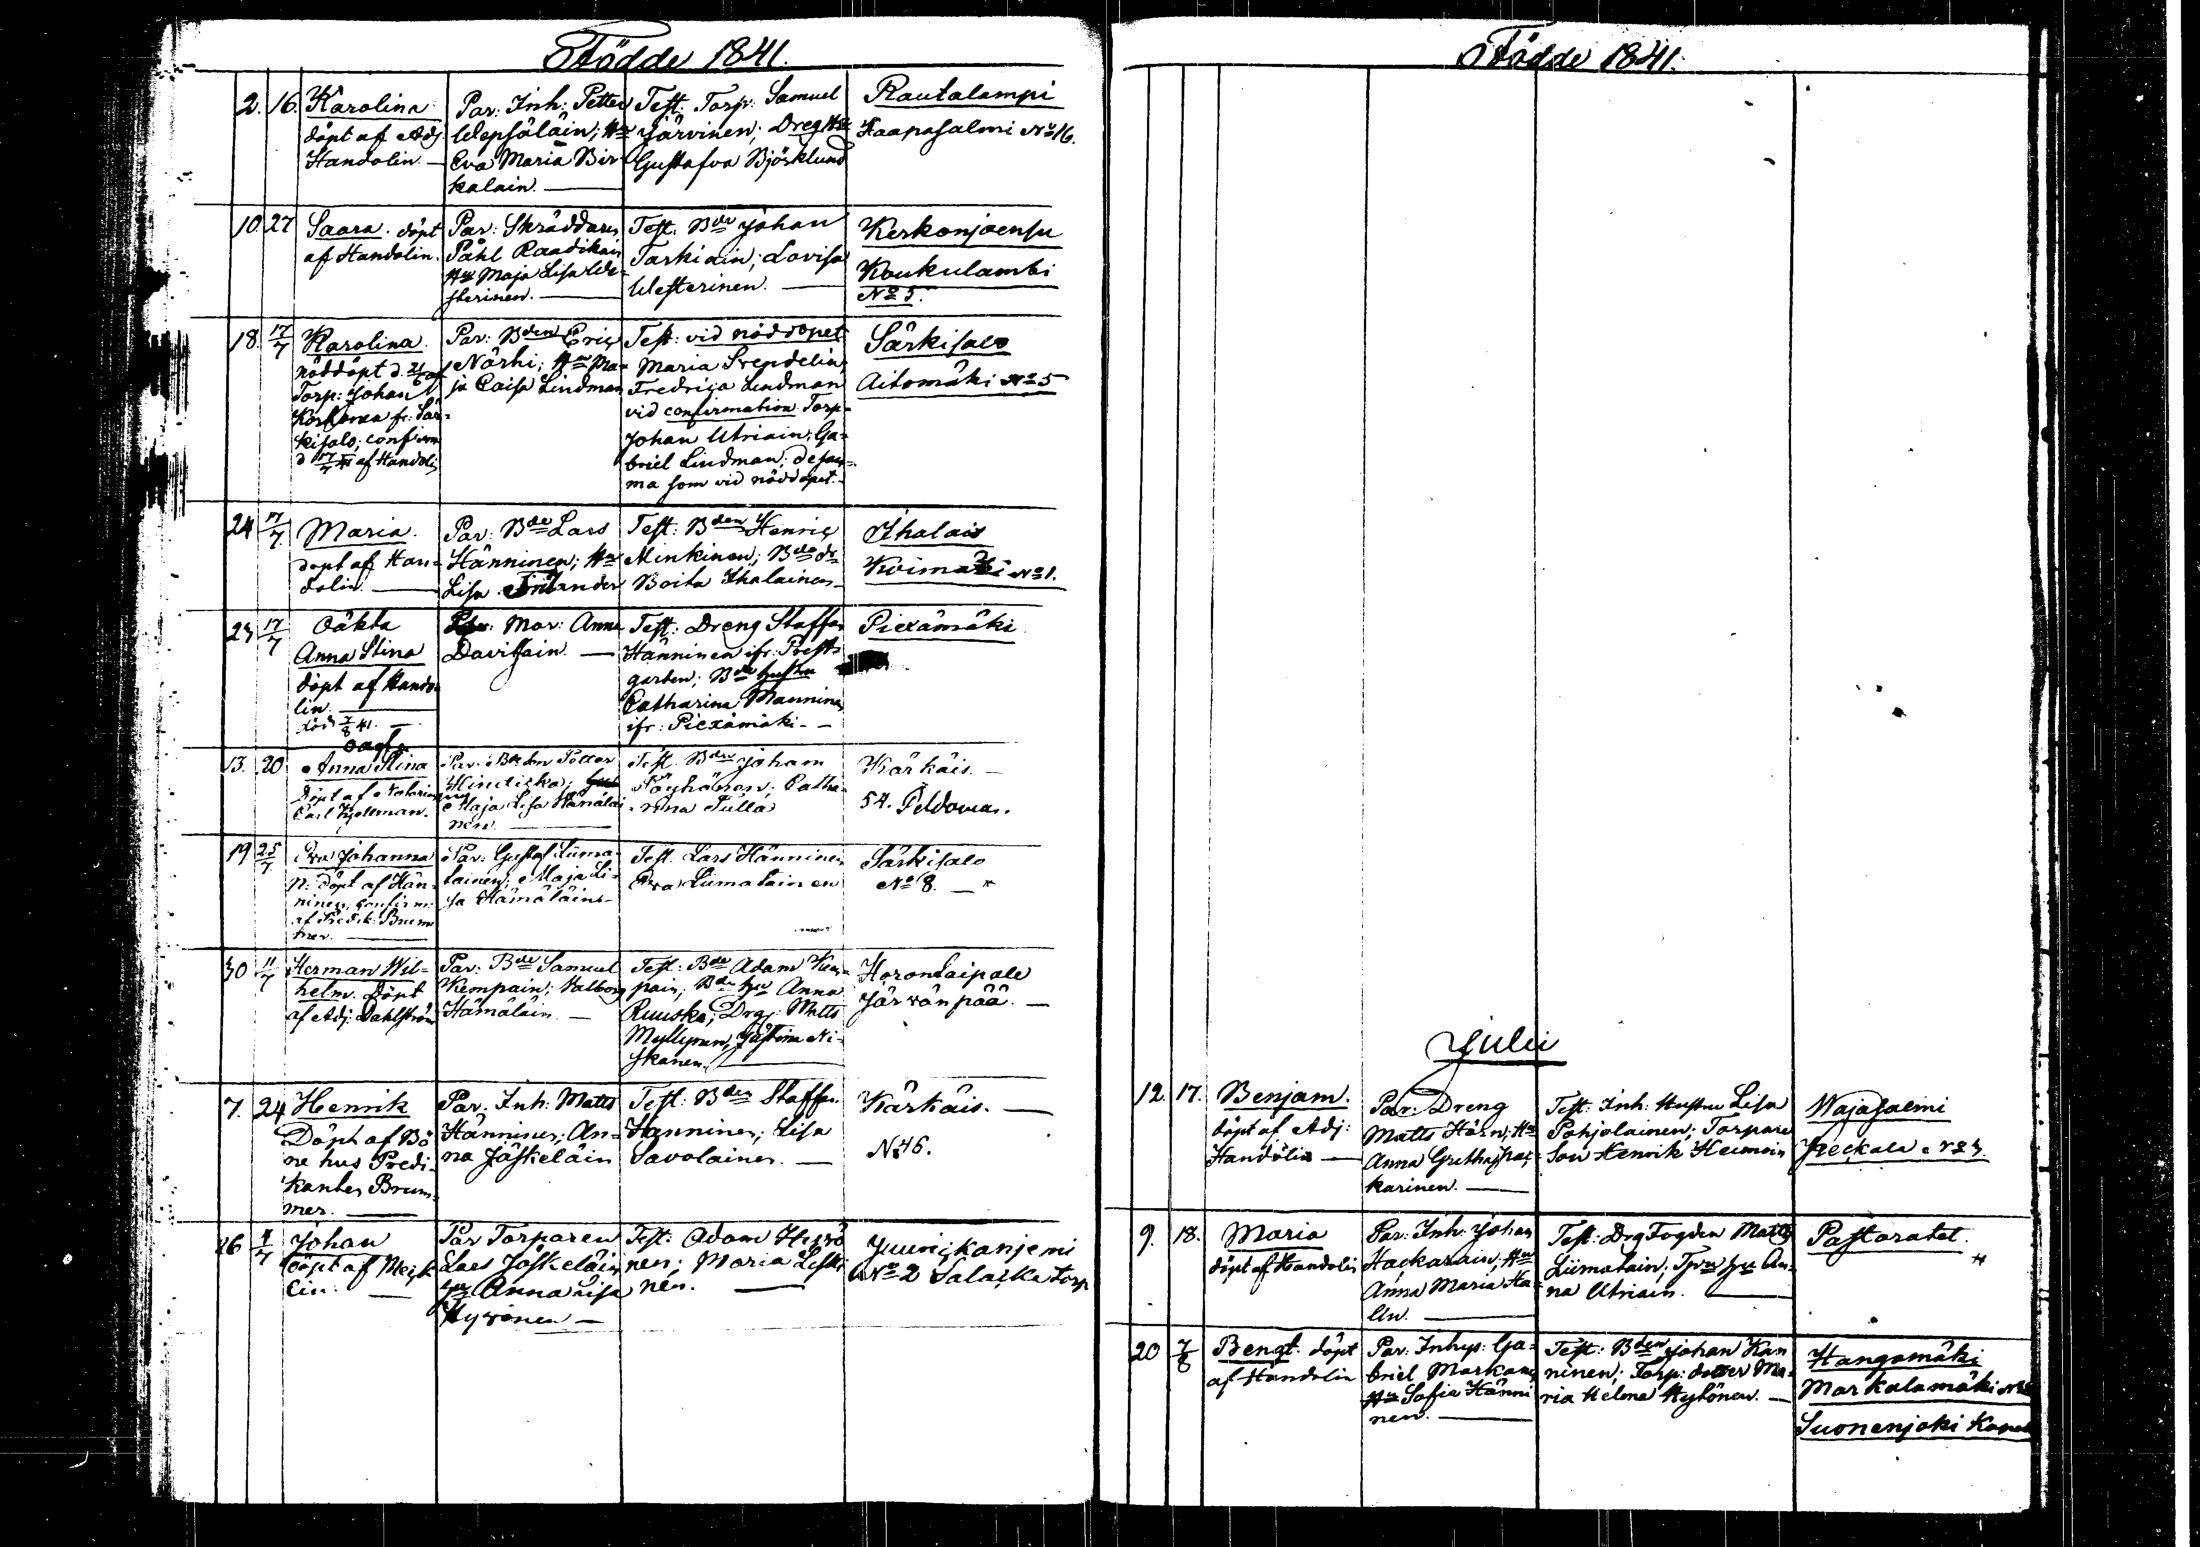 Födde 1841.
2. 16. Karolina
döpt af Adj.
Handolin. —
Par: Inh: Petter
Wepsäläin; Hu
Eva Maria Bir-
kalain. —
Test: Torp: Samuel
Järvinen; Dreg Hu
Gustafva Björklund
Rautalampi
Haapasalmi No 16.
10. 27 Saara. döpt
af Handolin.
Par: Skräddaren
Påhl Raadikain
Hu Maja Lisa We-
sterinen. —
Test. Bde Johan
Tarkiain; Lovisa
Westerinen. —
Kerkonjoensu
Koukulambi
No 5.
18. 17/7 Karolina.
nöddöpt d. af
Torp: Johan
Korhonen fr: Sär-
kisalo; confirm
d 17/7 41 af Handoli
Par: Bden Eric
Närhi; Hu Ma-
ja Caisa Lindman
Test: vid nöddopet
Maria Svendelin,
Fredrica Lindman
vid confirmation Torp-
Johan Utriain; Ga-
briel Lindman; desam-
ma som vid nöddopet. -
Särkisalo
Aitomäki No 5
24 17/7 Maria.
döpt af Han-
dolin. —
Par: Bde Lars
Hänninen; Hu
Lisa
Test: Bden Henric
Minkinen; Bde dr
Boita Ihalainen
Ihalais
No 1.
23 17/7 Oäkta
Anna Stina
döpt af Hando-
lin. —
död 7/8 41. —
Mor: Anna
Davitsain. —
Test: Dreng Staffan
Hänninen ifr: Prest-
garden; Bde hustru
Catharina Manninen
ifr: Piexämäki. —
Piexämäki
13. 20 oagta
Anna Stina
Döpt af Notarien
Carl Kjellman.
Par: Petter
Hindicka;
Maja Lisa Hämäläi-
nen. —
Test. Bden Joham
Pöyhönen; Catha-
rina Tulla
Kärkäis. —
54. Peldoma.
19 25/7 Eva Johanna
n: döpt af Hän-
ninen, confirm:
af Predik: Brum-
mer. —
Par: Gustaf Liima-
tainen; Maja Li-
sa Hämäläine-
Test. Lars Hänninen
Eva Liimatainen
Särkisalo
No 8. —
30 11/7 Herman Wil-
helm. Döpt
af Adj: Dahlström
Par: Bde Samuel
Kempain; Valborg
Hämäläin. —
Test: Bde Adam Kem-
pain; Bde hu Anna
Ruuska; Drg: Matts
Myllynen, Justina Ni-
skanen. —
Horontaipale
Järvänpää. —
7. 24 Henrik
Döpt af Bö-
ne hus Predi-
kanten Brum-
mer. —
Par. Inh: Matts
Hänninen; An-
na Jäskeläin
Test: Bden Staffan
Hänninen; Lisa
Savolainen. —
Kärkäis. —
No 46.
26 Johan
döpt af Meck-
lin. —
Par Torparen
Lars Jäskeläin
hu Anna Lisa
Hyvönen —
Test: Adam Hyvö
nen; Maria Leski
nen. —
No 2 Torp
Födde 1841.
Julii
12. 17. Benjam.
döpt af Adj:
Handolin —
Par: Dreng
Matts Hörn; Hu
Anna Gretha
karinen. —
Test: Inh: Hustru Lisa
Pohjolainen; Torpare
Son Henrik Heimoin
Wajasalmi
9. 18. Maria
döpt af Handolin
Par: Inh: Johan
Hackarain; Hu
Anna Maria Ha-
lin. —
Test: Drg Fogden Matts
Liimatain; Tprn hu An-
na Utriain. —
Pastoratet.
20 7/8 Bengt. döpt
af Handolin
Par: Inhys: Ga-
briel Markan
Hu Sofia Hänni
nen. —
Test: Bden Johan Kan
ninen; Torp: dotter Ma-
ria Helena Hytönen. —
Hangamäki
Markalamäki
Suonenjoki